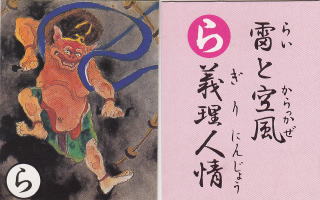 ら
ら
雷と空風
らい からっかぜ
義理人情
ぎり にんじょう